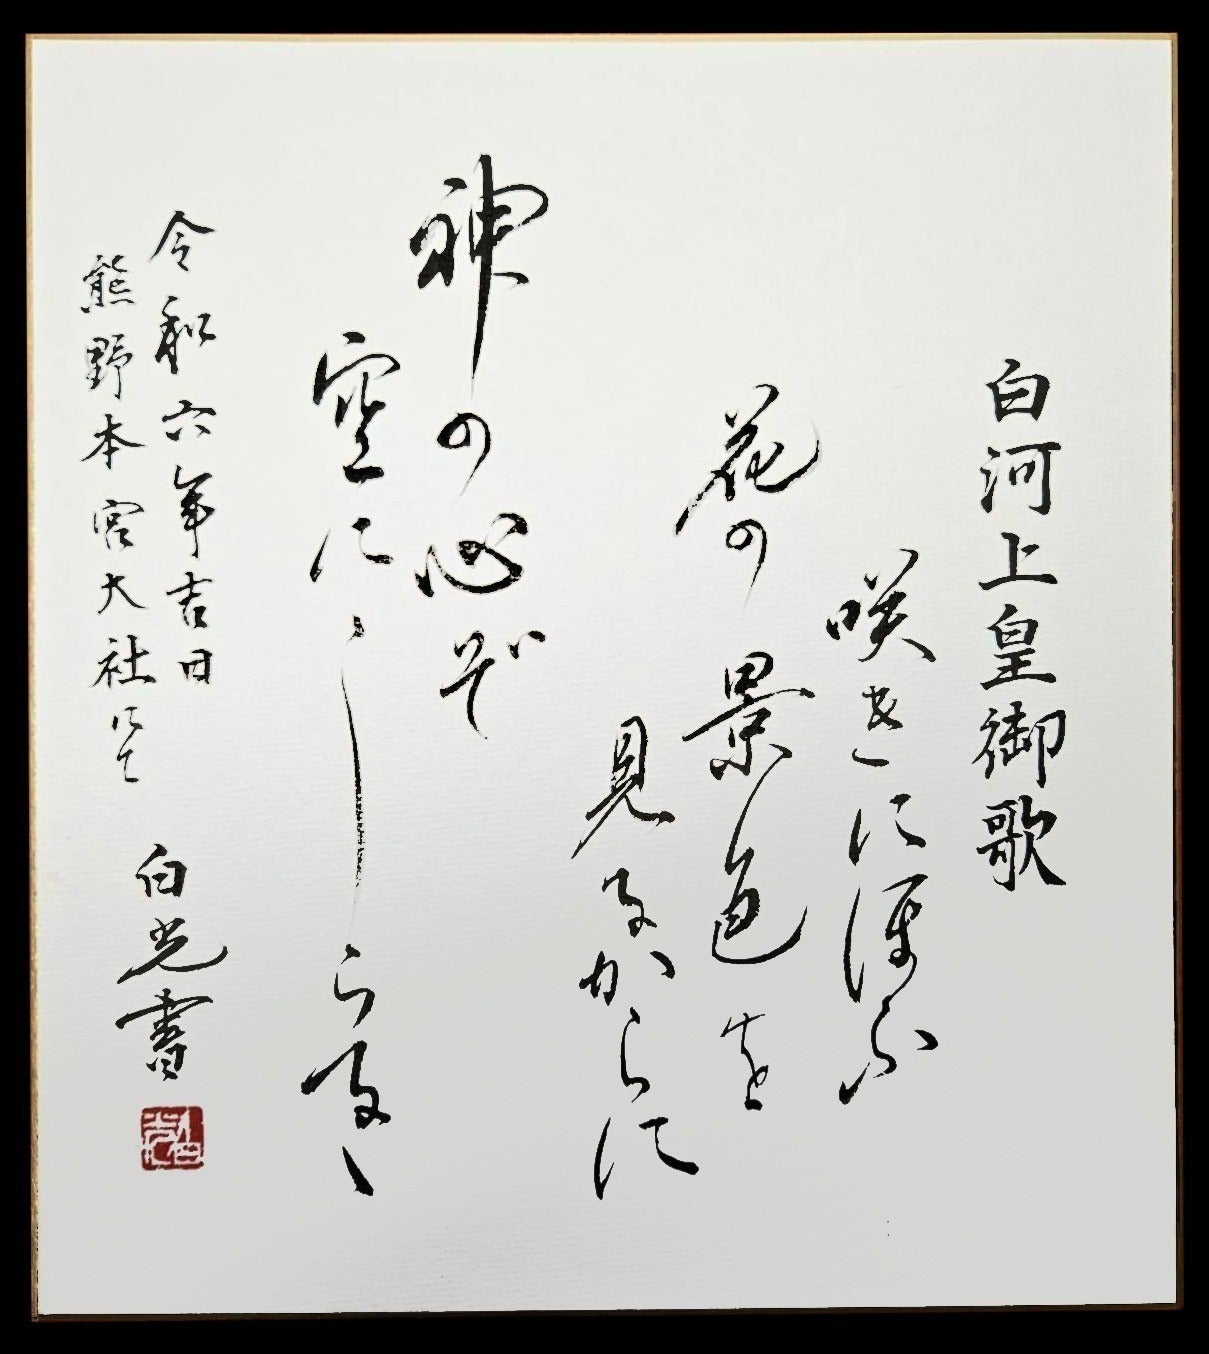 白河上皇御歌
咲きにほふ
花の景色を
見るからに
神の心ぞ
空にしらるゝ
令和六年吉日
熊野本宮大社にて
白光書
白光